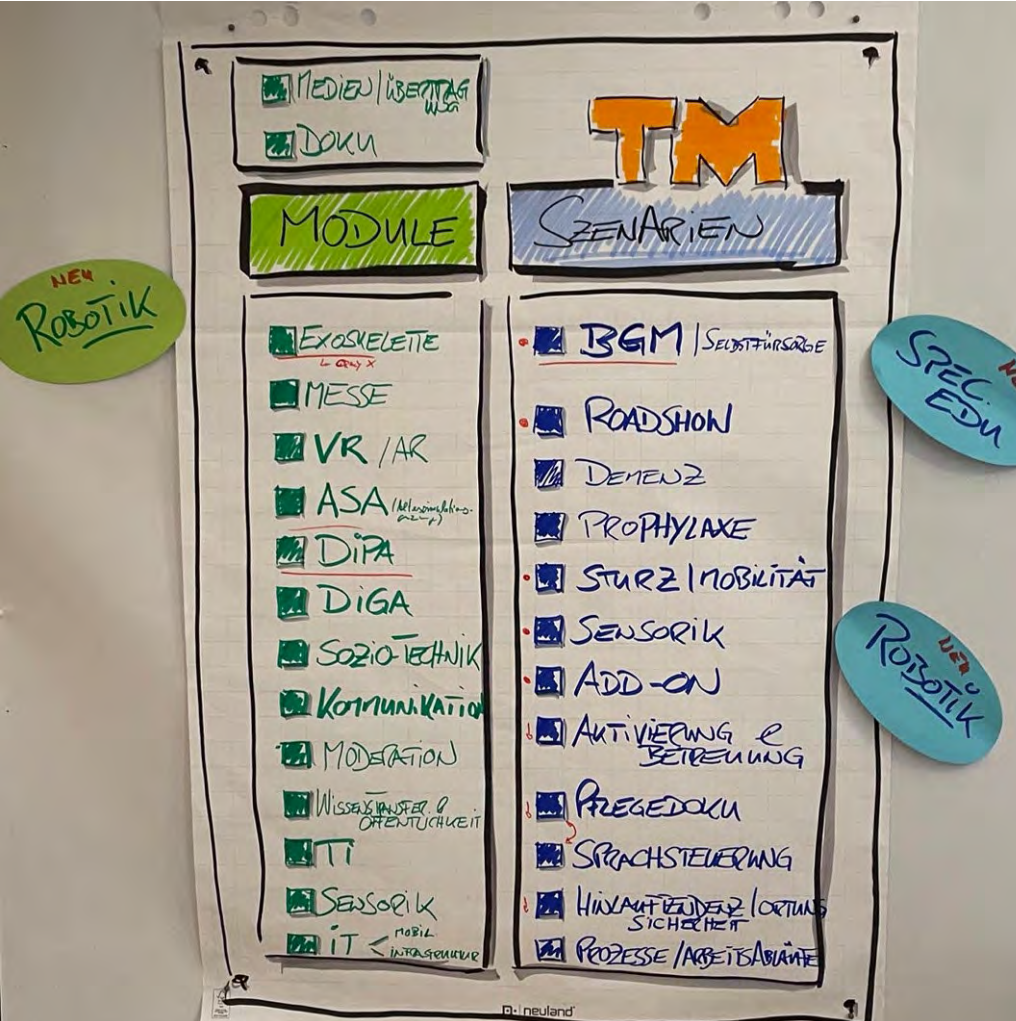 MEDIEN/ÜBERTRAG
DOKU
TM
MODULE
SZENARIEN
NEU
ROBOTIK
EXOSKELETTE
MESSE
VR/AR
ASA
DiPA
DiGA
SOZIO-TECHNIK
KOMMUNIKATION
MODERATION
WISSENSTANSFER &
ÖFFENTLICHKEIT
TI
SENSORIK
iT < MOBIL
INFRASTRUKTUR
BGM / SELBSTFÜRSORGE
ROADSHOW
DEMENZ
PROPHYLAXE
STURZ/MOBILITÄT
SENSORIK
ADD-ON
AKTIVIERUNG &
BETREUUNG
PFLEGEDOKU
SPRACHSTEUERUNG
HINLAUFTENDENZ/ORTUNG
SICHERHEIT
PROZESSE/ARBEITSABLÄUFE
SPEC.
EDU
NEU
ROBOTIK
neuland